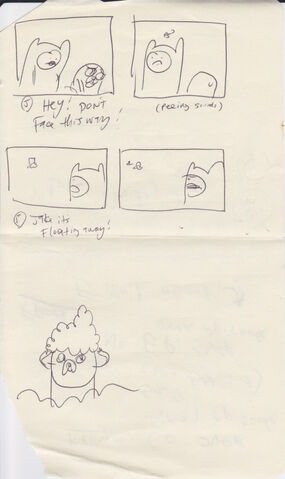 J Hey! DON'T
Face this way!
(peeing sounds)
F Jake its
Floating away!